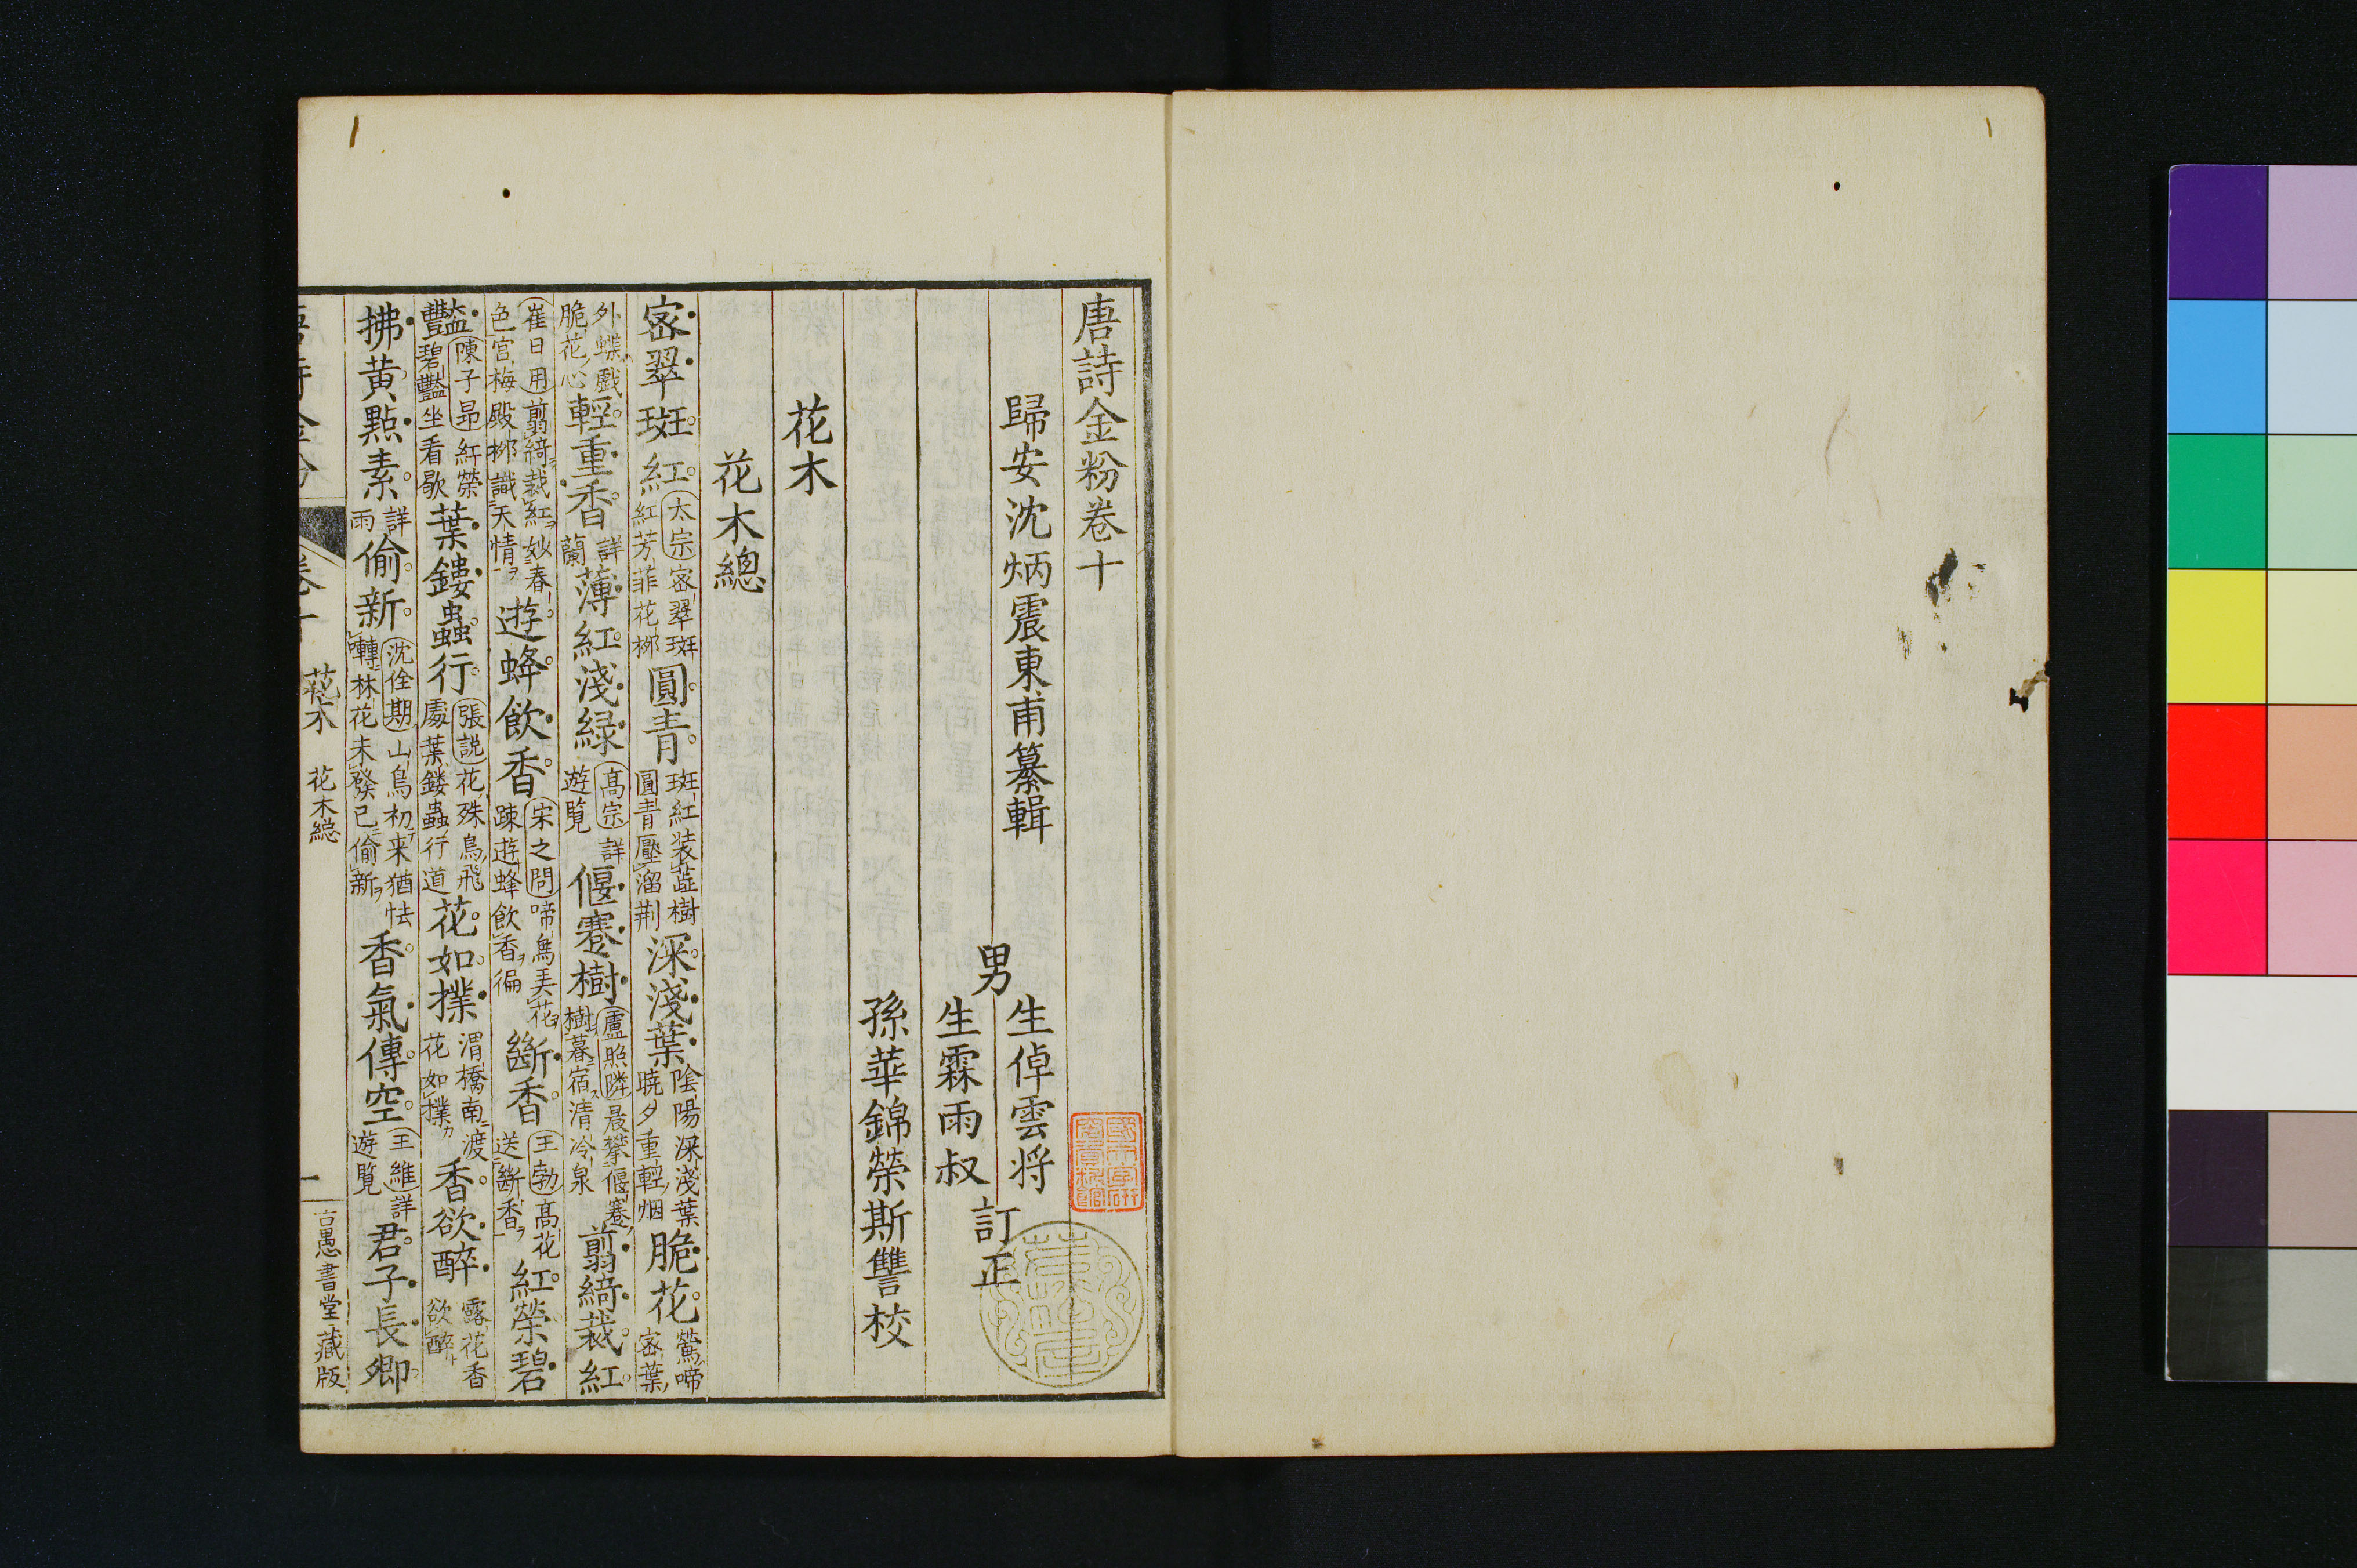 唐詩金粉卷十
歸安沈炳震東甫纂輯
男
生倬雲将
生霖雨叔
訂正
孫華錦榮斯讐校
花木
花木總
密翠斑紅
太宗密翠斑
紅芳菲花栁
圓青
斑紅装蘂樹
圓青壓溜荆
深淺葉
陰陽深淺葉
暁夕重輕烟
脆花
鶯啼密葉
外蝶戯脆花心
輕重香
詳蘭
薄紅淺緑
高宗詳
遊覧
偃蹇樹
盧照隣晨攀偃蹇
樹暮宿清冷泉
翦綺裁紅
崔日用翦綺裁紅妙春
色宫梅殿栁識天情
遊蜂飲香
宋之問啼鳥弄花
踈遊蜂飲香徧
斷香
王勃高花
送斷香
紅榮碧
豔
陳子昻紅榮
碧豔坐看歇
葉鏤蟲行
張説花殊鳥飛
處葉鏤蟲行道
花如撲
渭橋南渡
花如撲
香欲醉
露花香
欲醉
拂黄點素
詳雨
偷新
沈佺期山鳥初来猶怯
囀林花未發已偷新
香氣傳空
王維詳
遊覧
君子長卿
卷十
花木
花木總
古愚書堂藏版